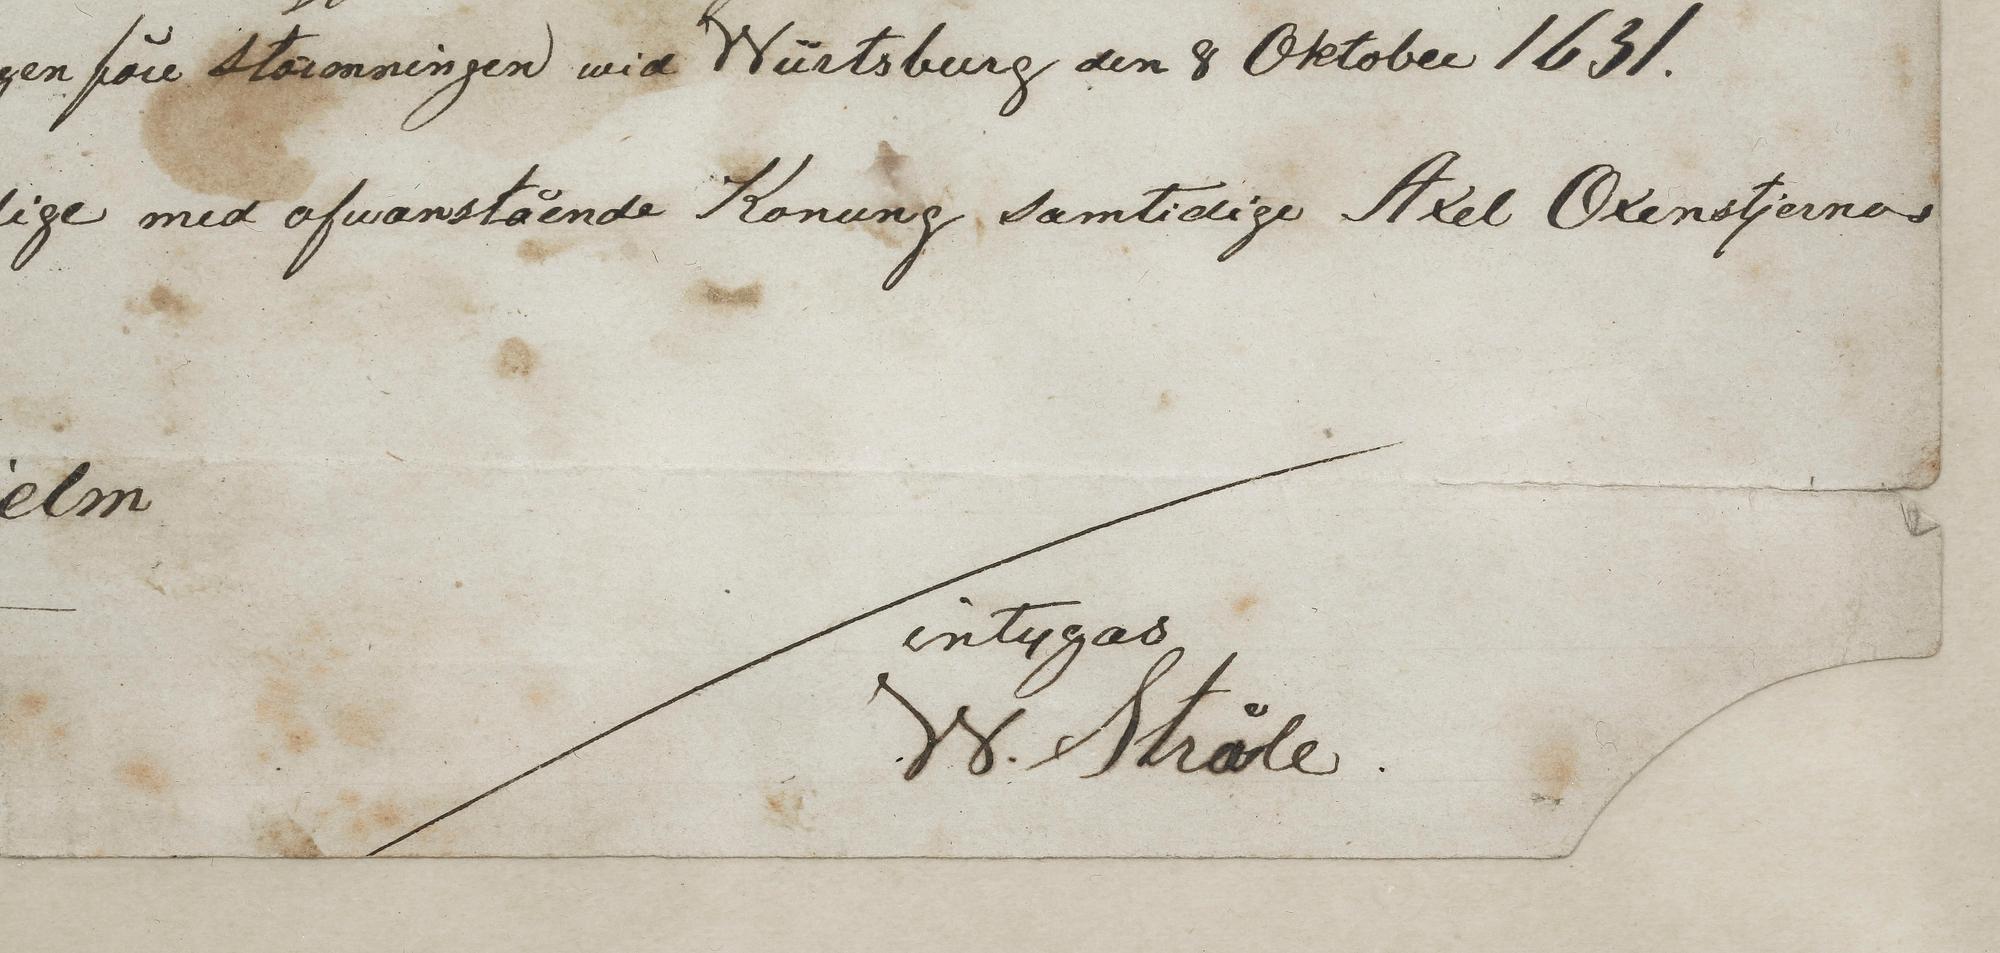 gen före stormningen) wid Würtsburg den 8 Oktober 1631.
lige med ofwanstående Konung samtidige Axel Oxenstjernas
jelm
intygas
W. Stråle.